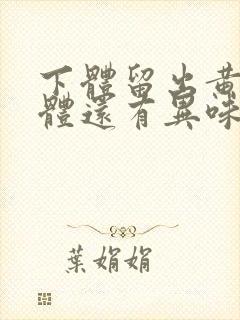 下體留出黃
體還有異味
葉娟娟